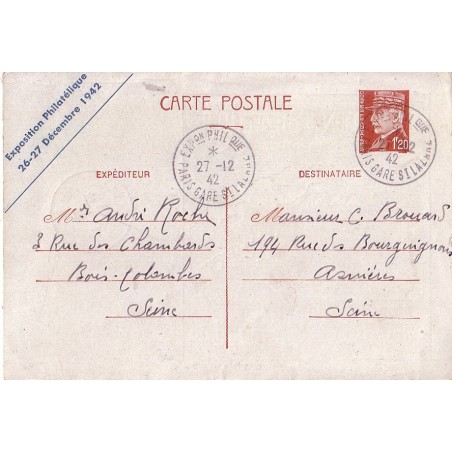 Exposition Philatélique
26-27 Décembre 1942
CARTE POSTALE
1f20
EXPON PHILQUE
*
27-12
42
PARIS GARE ST LAZARE
42
PARIS GARE ST LAZARE
EXPÉDITEUR
DESTINATAIRE
Mr André Roche
3 Rue des Chambards
Bois-Colombes
Seine
Monsieur C. Brouard
194 Rue des Bourguignons
Asnières
Seine